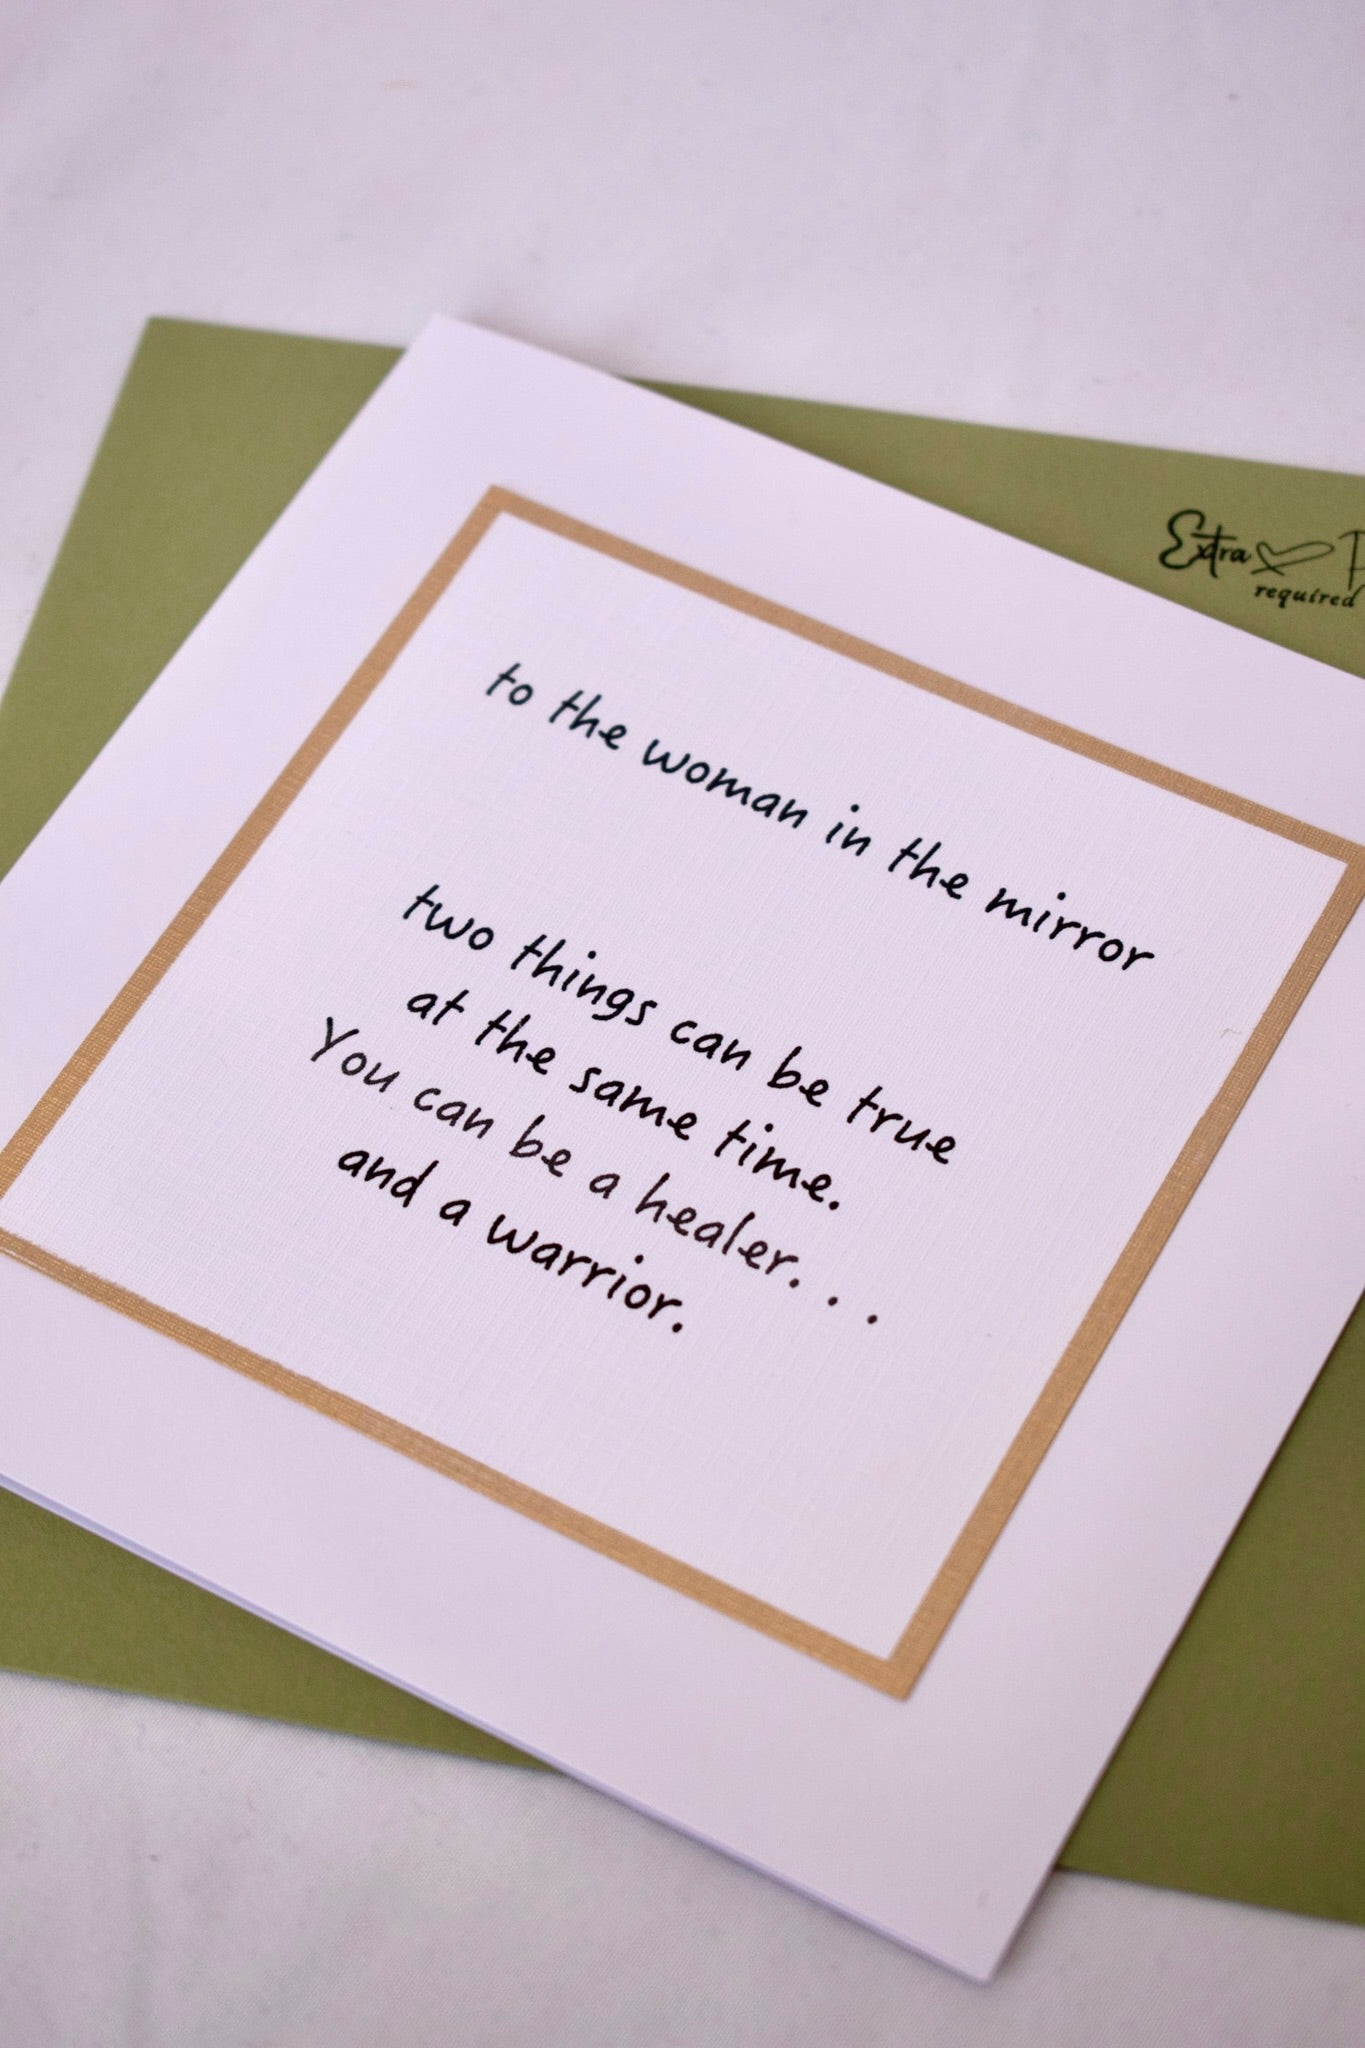 Extra
required
to the woman in the mirror
two things can be true
at the same time.
You can be a healer. . .
and a warrior.